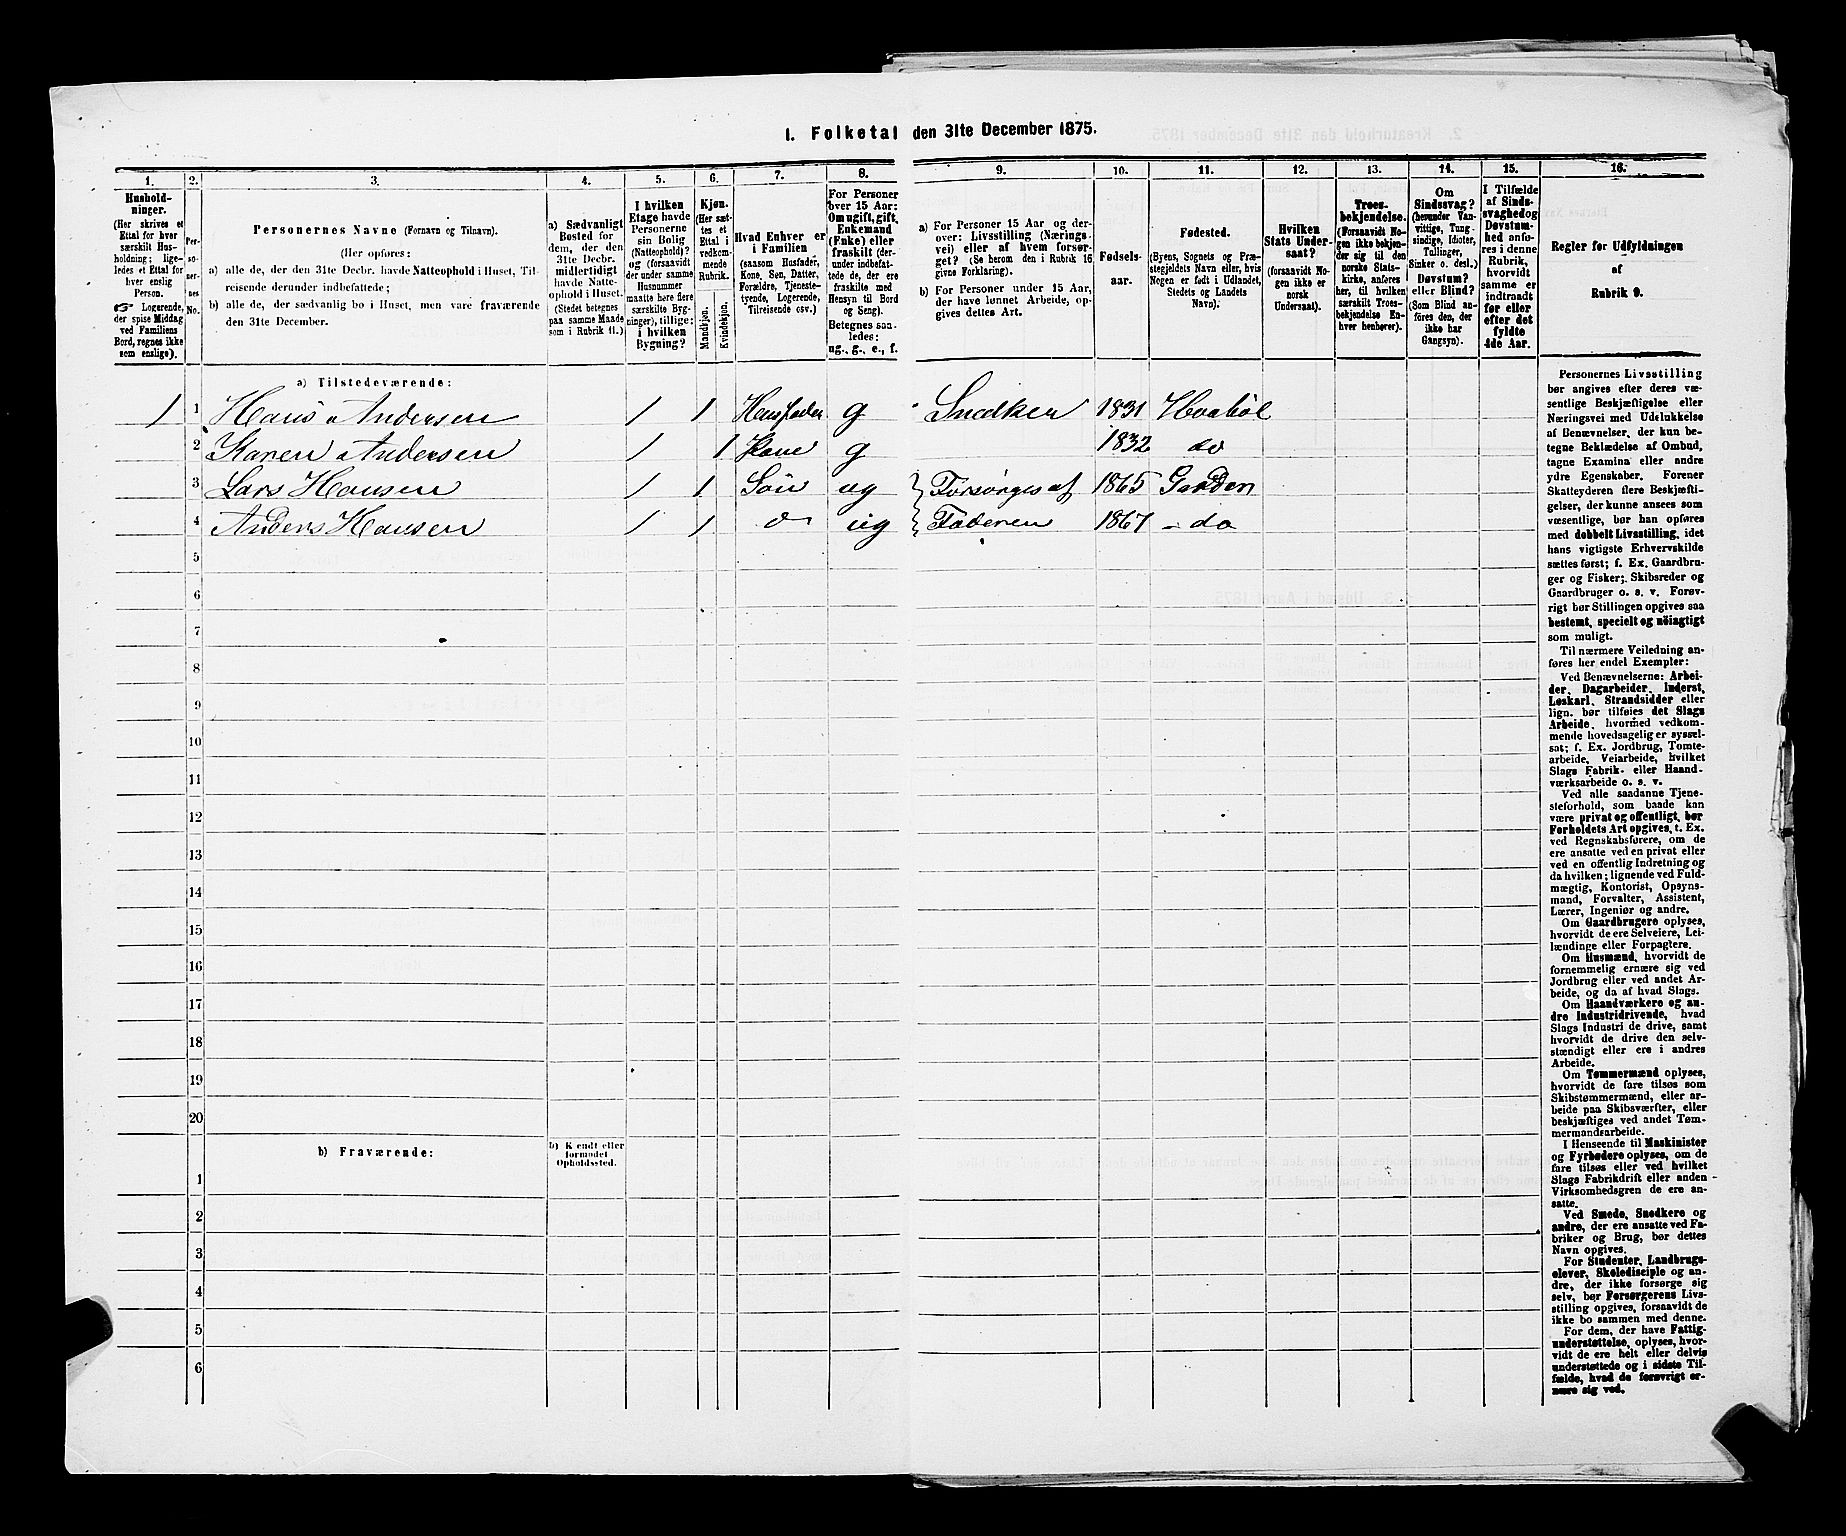 1. Folketal den 31te December 1875.
1. 2. 3. 4. 5. 6. 7. 8. 9. 10. 11. 12. 13. 14. 15. 16.
Hushold-
ninger.
(Her skrives et
Ettal for hver
særskilt Hus-
holdning; lige-
ledes et Ettal for
hver enslig
Person.
Logerende,
der spise Middag
ved Familiens
Bord, regnes ikke
som enslige).
Per-
so-
ner-
nes
No.
Personernes Navne (Fornavn og Tilnavn).
(Her opføres:
a) alle de, der den 31te Decbr. havde Natteophold i Huset, Til-
reisende derunder indbefattede;
b) alle de, der sædvanlig bo i Huset, men vare fraværende
den 31te December.
a) Sædvanligt
Bosted for
dem, der den
31te Decbr.
midlertidigt
havde Natte-
ophold i Huset.
(Stedet betegnes
paa samme Maade
som i Rubrik 11.)
I hvilken
Etage havde
Personerne
sin Bolig
(Natteophold)?
og (forsaavidt
der under samme
Husnummer
maatte høre flere
særskilte Byg-
ninger), tillige:
i hvilken
Bygning?
Kjøn.
(Her sæt-
tes et
Ettal i
vedkom-
mende
Rubrik.
Mandkjøn.
Kvindekjøn.
Hvad Enhver er
i Familien
(saasom Husfader,
Kone, Søn, Datter,
Forældre, Tjeneste-
tyende, Logerende,
Tilreisende osv.)
For Personer
over 15 Aar:
Om ugift, gift,
Enkemand
(Enke) eller
fraskilt (der-
under indbefat-
tede de, der ere
fraskilte med
Hensyn til Bord
og Seng).
Betegnes saa-
ledes:
ug., g., e., f.
a) For Personer 15 Aar og der-
over: Livsstilling (Nærings-
vei) eller af hvem forsør-
get? (Se herom den i Rubrik 16
givne Forklaring).
b) For Personer under 15 Aar,
der have lønnet Arbeide, op-
gives dettes Art.
Fødsels-
aar.
Fødested.
(Byens, Sognets og Præ-
stegjeldets Navn eller, hvis
Nogen er født i Udlandet,
Stedets og Landets
Navn).
Hvilken
Stats Under-
saat?
(forsaavidt No-
gen ikke er
norsk
Undersaat).
Troes-
bekjendelse.
(Forsaavidt No-
gen ikke bekjen-
der sig til den
norske Stats-
kirke, anføres
her, til hvilken
særskilt Troes-
bekjendelse En-
hver henhører).
Om
Sindssvag?
(herunder Van-
vittige, Tung-
sindige, Idioter,
Tullinger,
Sinker o. desl.)
Døvstum?
eller Blind?
(Som Blind an-
føres den, der
ikke har
Gangsyn).
I Tilfælde
af Sinds-
svaghed og
Døvstum-
hed anfø-
res i denne
Rubrik,
hvorvidt
samme er
indtraadt
før eller
efter det
fyldte
4de Aar.
Regler før Udfyldningen
af
Rubrik 9.
a) Tilstedeværende:
1 1 Hans Andersen 1 1 Husfader g Snedker 1831 Hvaböl
2 Karen Andersen 1 1 Kone g 1832 do
3 Lars Hansen 1 1 Søn ug Forsørges af 1865 Garden
4 Anders Hansen 1 1 ug Faderen 1867 - do
5
6
7
8
9
10
11
12
13
14
15
16
17
18
19
20
b) Fraværende:
b) Kjendt eller
formodet
Opholdssted.
1
2
3
4
5
6
Personernes Livsstilling
bør angives efter deres væ-
sentlige Beskjæftigelse eller
Næringsvei med Udelukkelse
af Benævnelser, der kun be-
tegne Beklædelse af Ombud,
tagne Examina eller andre
ydre Egenskaber. Forener
Skatteyderen flere Beskjæfti-
gelser, der kunne ansees som
væsentlige, bør han opføres
med dobbelt Livsstilling, idet
hans vigtigste Erhvervskilde
sættes først; f. Ex. Gaardbru-
ger og Fisker; Skibsreder og
Gaardbruger o. s. v. Forøv-
rigt bør Stillingen opgives saa
bestemt, specielt og nøiagtigt
som muligt.
Til nærmere Veiledning an-
føres her endel Exempler:
Ved Benævnelserne: Arbei-
der, Dagarbeider, Inderst,
Løskarl, Strandsidder eller
lign. bør tilføies det Slags
Arbeide, hvormed vedkom-
mende hovedsagelig er syssel-
sat; f. Ex. Jordbrug, Tomte-
arbeide, Veiarbeide, hvilket
Slags Fabrik- eller Haand-
værksarbeide o. s. v.
Ved alle saadanne Tjene-
steforhold, som baade kan
være privat og offentligt, bør
Forholdets Art opgives, t. Ex.
ved Regnskabsførere, om de
ere ansatte ved en privat eller
ved en offentlig Indretning og
da hvilken; lignende ved Fuld-
mægtig, Kontorist, Opsyns-
mand, Forvalter, Assistent,
Lærer, Ingeniør og andre.
Om Gaardbrugere oplyses,
hvorvidt de ere Selveiere, Lei-
lændinge eller Forpagtere.
Om Husmænd, hvorvidt de
fornemmelig ernære sig ved
Jordbrug eller ved andet Ar-
beide, og da af hvad Slags.
Om Haandværkere og an-
dre Industridrivende, hvad
Slags Industri de drive, samt
hvorvidt de drive den selv-
stændigt eller ere i andres
Arbeide.
Om Tømmermænd oplyses,
hvorvidt de fare tilsøs som
Skibstømmermænd, eller ar-
beide paa Skibsværfter, eller
beskjæftiges ved andet Tøm-
mermandsarbeide.
I Henseende til Maskinister
og Fyrbødere oplyses, om de
fare tilsøs eller ved hvilket
Slags Fabrikdrift eller anden
Virksomhedsgren de ere an-
satte.
Ved Smede, Snedkere og
andre, der ere ansatte ved Fa-
briker og Brug, bør dettes
Navn opgives.
For Studenter, Landbrugs-
elever, Skoledisciple og an-
dre, der ikke forsørge sig
selv, bør Forsørgerens Livs-
stilling opgives, forsaavidt de
ikke bo sammen med denne.
For dem, der have Fattig-
understøttelse, oplyses, hvor-
vidt de ere helt eller delvis
understøttede og i sidste Til-
fælde, hvad de forøvrigt er-
nære sig ved.